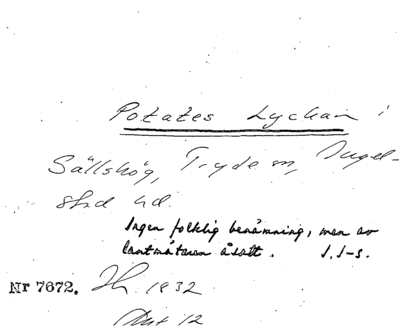 Potates Lyckan i
Sällshög, Tryde sn, Ingel-
stad hd.
Ingen folklig benämning, men av
lantmätaren åsatt. I.I-s.
Nr 7672. 1832
Akt 12